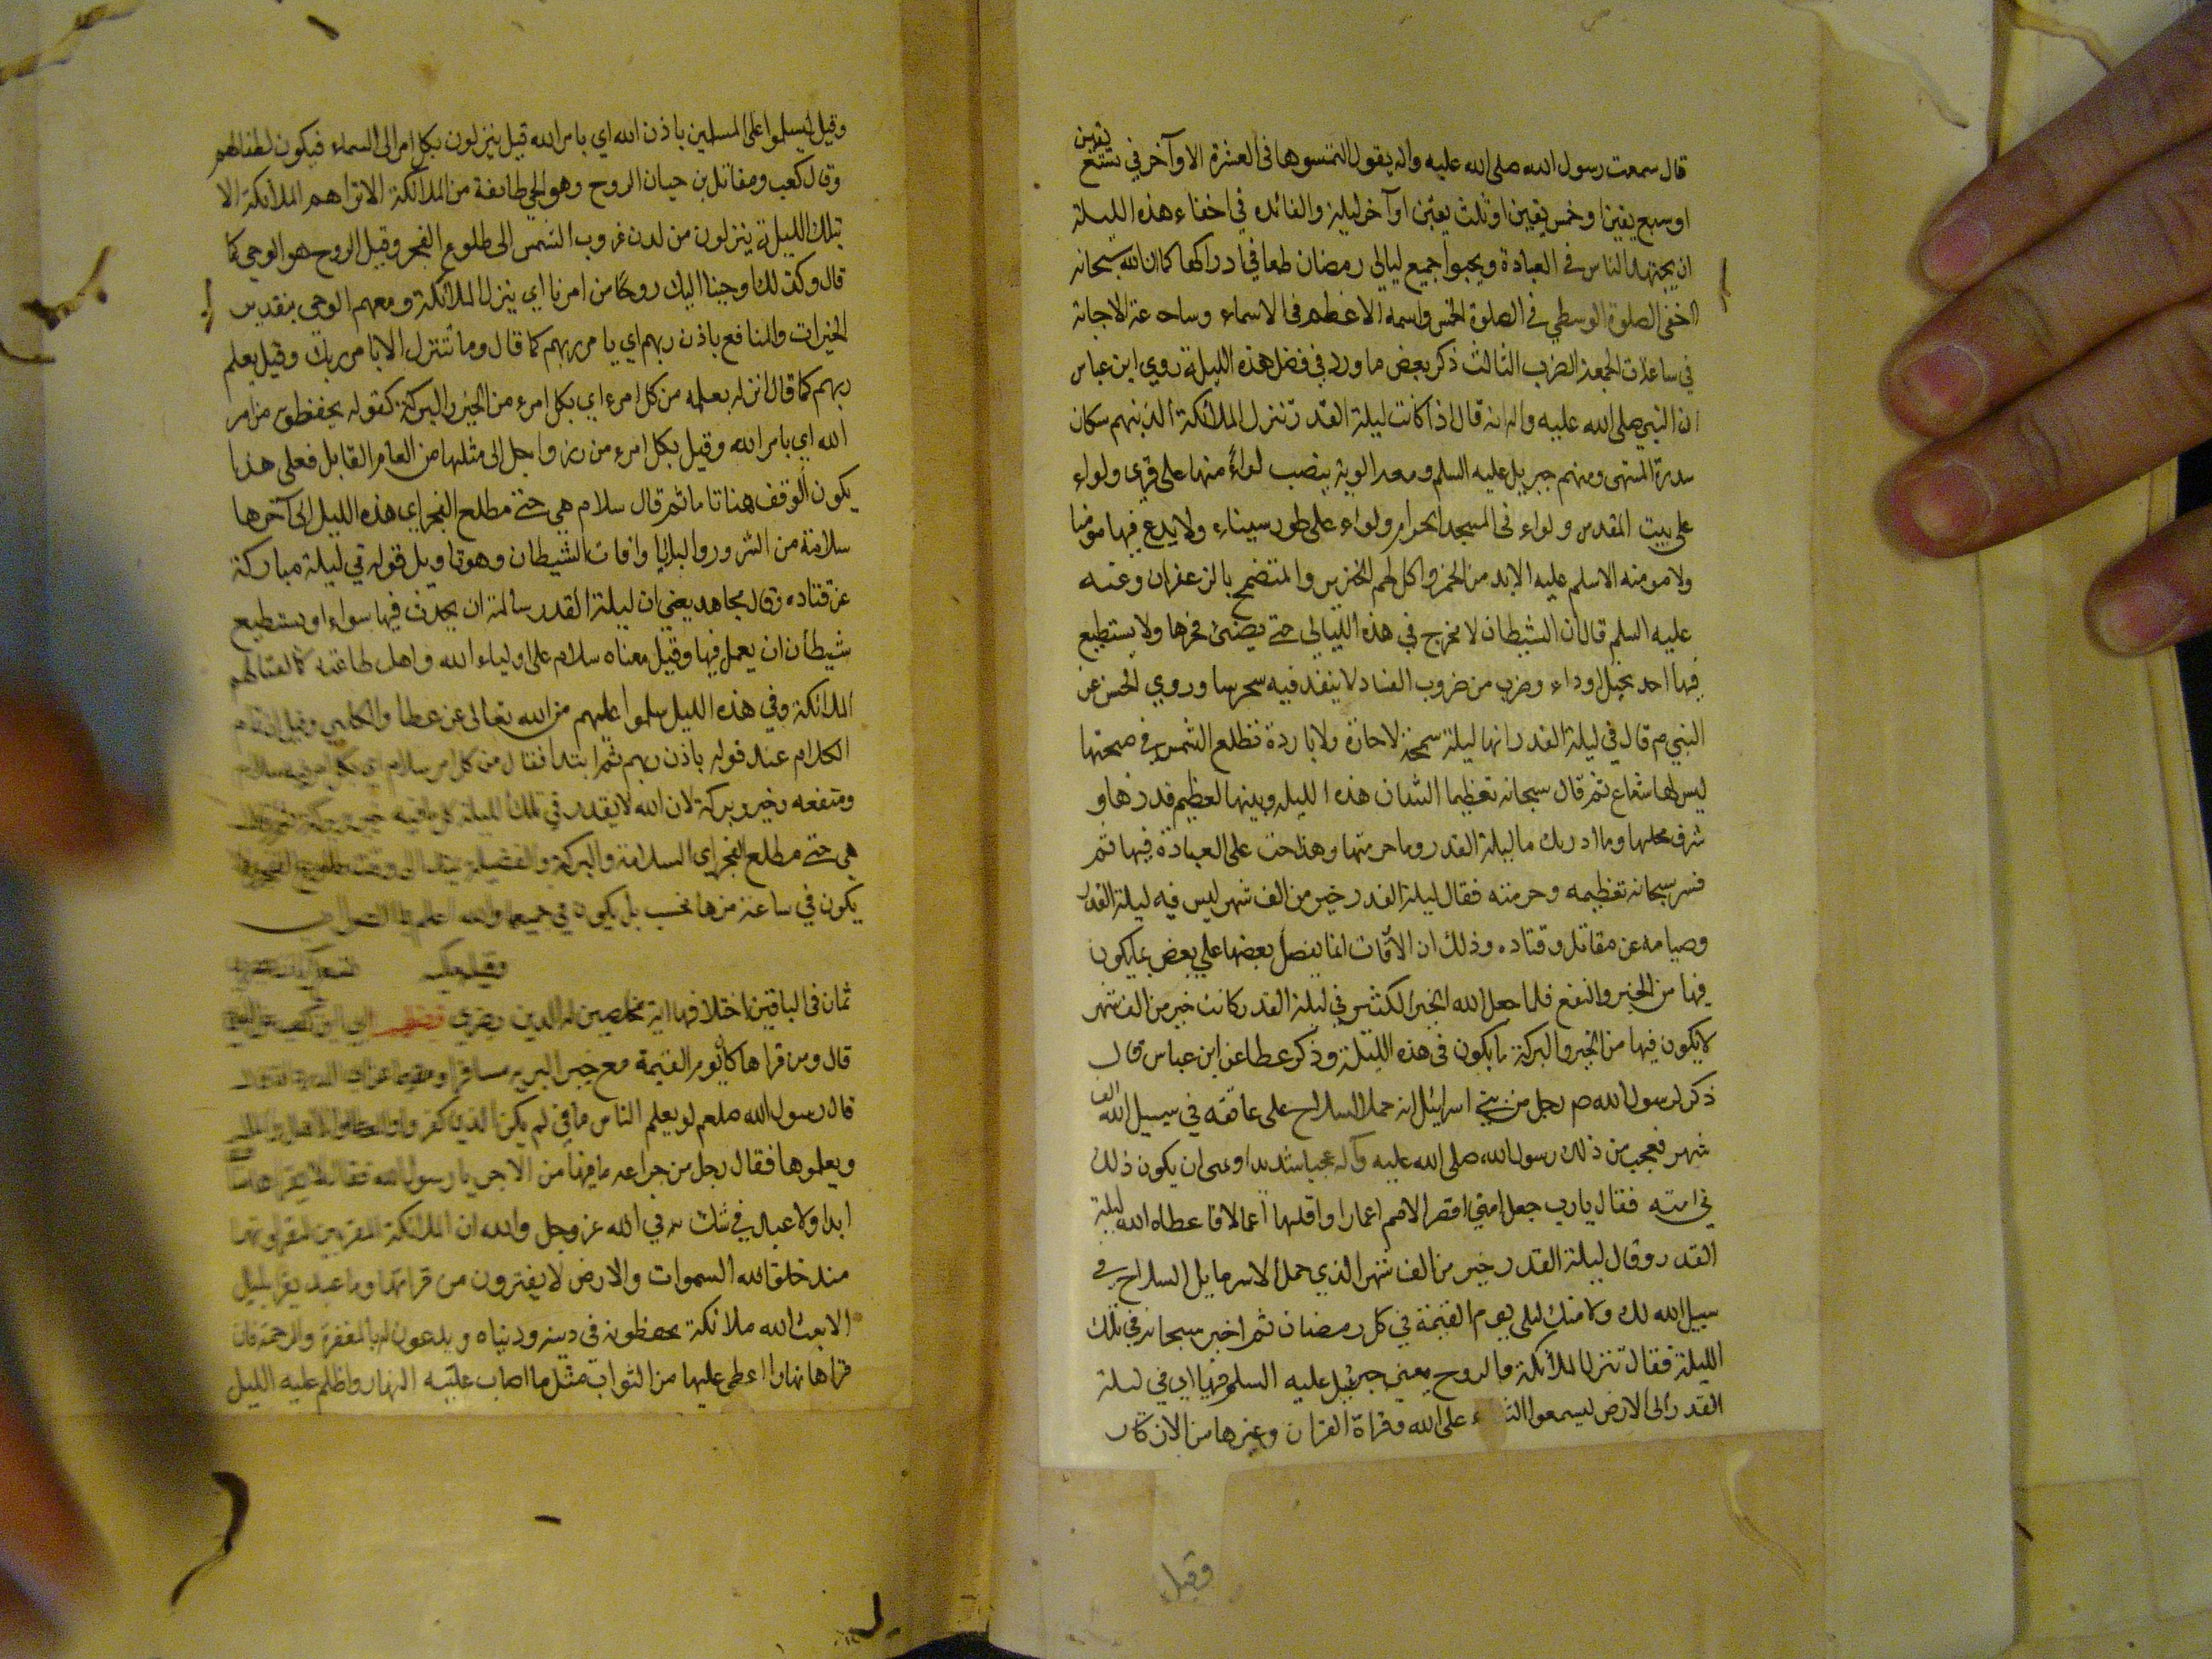 قال سمعت رسول الله صلى الله عليه واله يقول التمسوها فى العشرة الاوآخر في تسع
يقين
او سبع يقين او خمس يقين او ثلث يقين اوآخر ليلة والفائده في اخفاء هذه الليلة
ان يجتهد الناس في العبادة ويحيوا جميع ليالي رمضان طمعا في ادراكها كما ان الله سبحانه
اخفى الصلوة الوسطي في الصلوة الخمس واسمه الاعظم فى الاسماء وساعة الاجابة
في ساعات الجمعة الضرب الثالث ذكر بعض ما ورد في فضل هذه الليلة روي ابن عباس
ان النبي صلى الله عليه واله انه قال اذا كانت ليلة القدر تنزل الملائكة الذينهم سكان
سدرة المنتهى ومنهم جبريل عليه السلم ومعه الوية ينصب لواء منها على قبري ولواء
على بيت المقدس ولواء فى المسجد الحرام ولواء على طور سيناء ولا يدع فيها مومنا
ولا مومنة الاسلم عليه الا مد من الخمر واكل لحم الخنزير والمتضمخ بالزعفران وعنه
عليه السلم قال ان الشيطان لا يخرج في هذه الليالي حتى يضئ فجرها ولا يستطيع
فيها احد بخبل اوداء وضرب من ضروب الفساد لا ينفد فيه سحرسا وروي الحسن عن
النبي ص قال في ليلة القدر انها ليلة سمحة لا حارة ولا باردة تطلع الشمس في صبيحتها
ليس لها شعاع ثم قال سبحانه تعظيما لشان هذه الليلة وبينها لعظيم قدرها و
شرف محلها وما ادريك ما ليلة القدر وما حرمتها وهذا حث على العبادة فيها ثم
فسر سبحانه تعظيمه وحرمته فقال ليلة القدر خير من الف شهر ليس فيه ليلة القدر
وصيامه عن مقاتل وقتاده وذلك ان الاوقات انما يفضل بعضها علي بعض بما يكون
فيها من الخير والنفع فلما جعل الله الخير الكثير في ليلة القدر كانت خير من الف شهر
لا يكون فيها من الخير والبركة ما يكون فى هذه الليلة وذكر عطا عن ابن عباس قال
ذكر لرسول الله ص رجل من بني اسرائيل انه حمل السلاح على عاتقه في سبيل الله
الف
شهر فعجب من ذلك رسول الله صلى الله عليه وآله عجبا شديدا وتمنى ان يكون ذلك
في امته فقال يارب جعل امتي اقصر الامم اعمارا واقلها اعمالا فاعطاه الله ليلة
القدر وقال ليلة القدر خير من الف شهر الذي حمل الاسرمايل السلاح في
سبيل الله لك ولامتك لىلى يوم القيمة في كل رمضان ثم اخبر سبحانه في تلك
الليلة فقال تنزل الملائكة والروح يعني جبرئيل عليه السلم فيها اي في ليلة
القدر الى الارض ليسمعوا الثناء على الله وقراة القران وغيرها من الاذكار
وقيل
وقيل ليسلموا على المسلمين باذن الله اي بامر الله قيل ينزلون بكل امر الى السماء فيكون لطفا لهم
وقال كعب ومقاتل بن حيان الروح وهو الحي طايفة من الملائكة الا تراهم الملائكة الا
تلك الليلة ينزلون من لدن غروب الشمس الى طلوع الفجر وقيل الروح هو الوحى كما
قال وكذلك اوحينا اليك روحا من امرنا اي ينزل الملائكة ومعهم الوحي بتقدير
الخيرات والمنافع باذن ربهم اي بامر ربهم كما قال وما نتنزل الا بامر ربك وقيل يعلم
ربهم كما قال انزله بعلمه من كل امر اي بكل امر من الخير والبركة كقوله يحفظونه من امر
الله اي بامر الله وقيل بكل امر من رزق واجل الى مثلها من العام القابل فعلى هذا
يكون الوقف هنا تاما ثم قال سلام هي حتى مطلع الفجر اي هذه الليل الى آخرها
سلامة من الشرور والبلايا وافات الشيطان وهو تاويل قوله في ليلة مباركة
عن قتاده وقال مجاهد يعني ان ليلة القدر سالمة ان يحدث فيها سواء او يستطيع
شيطان ان يعمل فيها وقيل معناه سلام على اولياء الله واهل طاعته كما لقتالهم
الملائكة وفي هذه الليل سلموا عليهم من الله تعالى عن عطا والكلبي وقيل ان تمام
الكلام عند قوله باذن ربهم ثم ابتدا فقال من كل امر سلام اي بكل امر فيه سلام
ومنفعه وخير وبركة لان الله لا يقدر في تلك الليلة كل ما فيه خير وبركة ثم قال
هي حتى مطلع الفجر اي السلامة والبركة والفضيلة يمتد الى وقت طلوع الفجر ولا
يكون في ساعة منها فحسب بل يكون في جميعها والله اعلم بالصواب
ثمان في الباقين اختلافها اية مخلصين له الدين بصري
قال ومن قراها كان يوم القيمة مع خير البريه مسافرا ومقيما
قال رسول الله صلعم لو يعلم الناس ما في لم يكن الذين كفروا
ويعلموها فقال رجل من خزاعه ما فيها من الاجر يا رسول الله فقال لا يقراها
ابدا ولا عبد في شك في الله عز وجل والله ان الملائكة المقربين ليقراونها
منذ خلق الله السموات والارض لا يفترون من قراءتها وما عبد يقرا بليل
الا بعث الله ملائكة يحفظونه في دينه ودنياه ويدعون له بالمغفرة والرحمة فان
قراها نهارا اعطى عليها من الثواب مثل ما اصاب عليه النهار واظلم عليه الليل